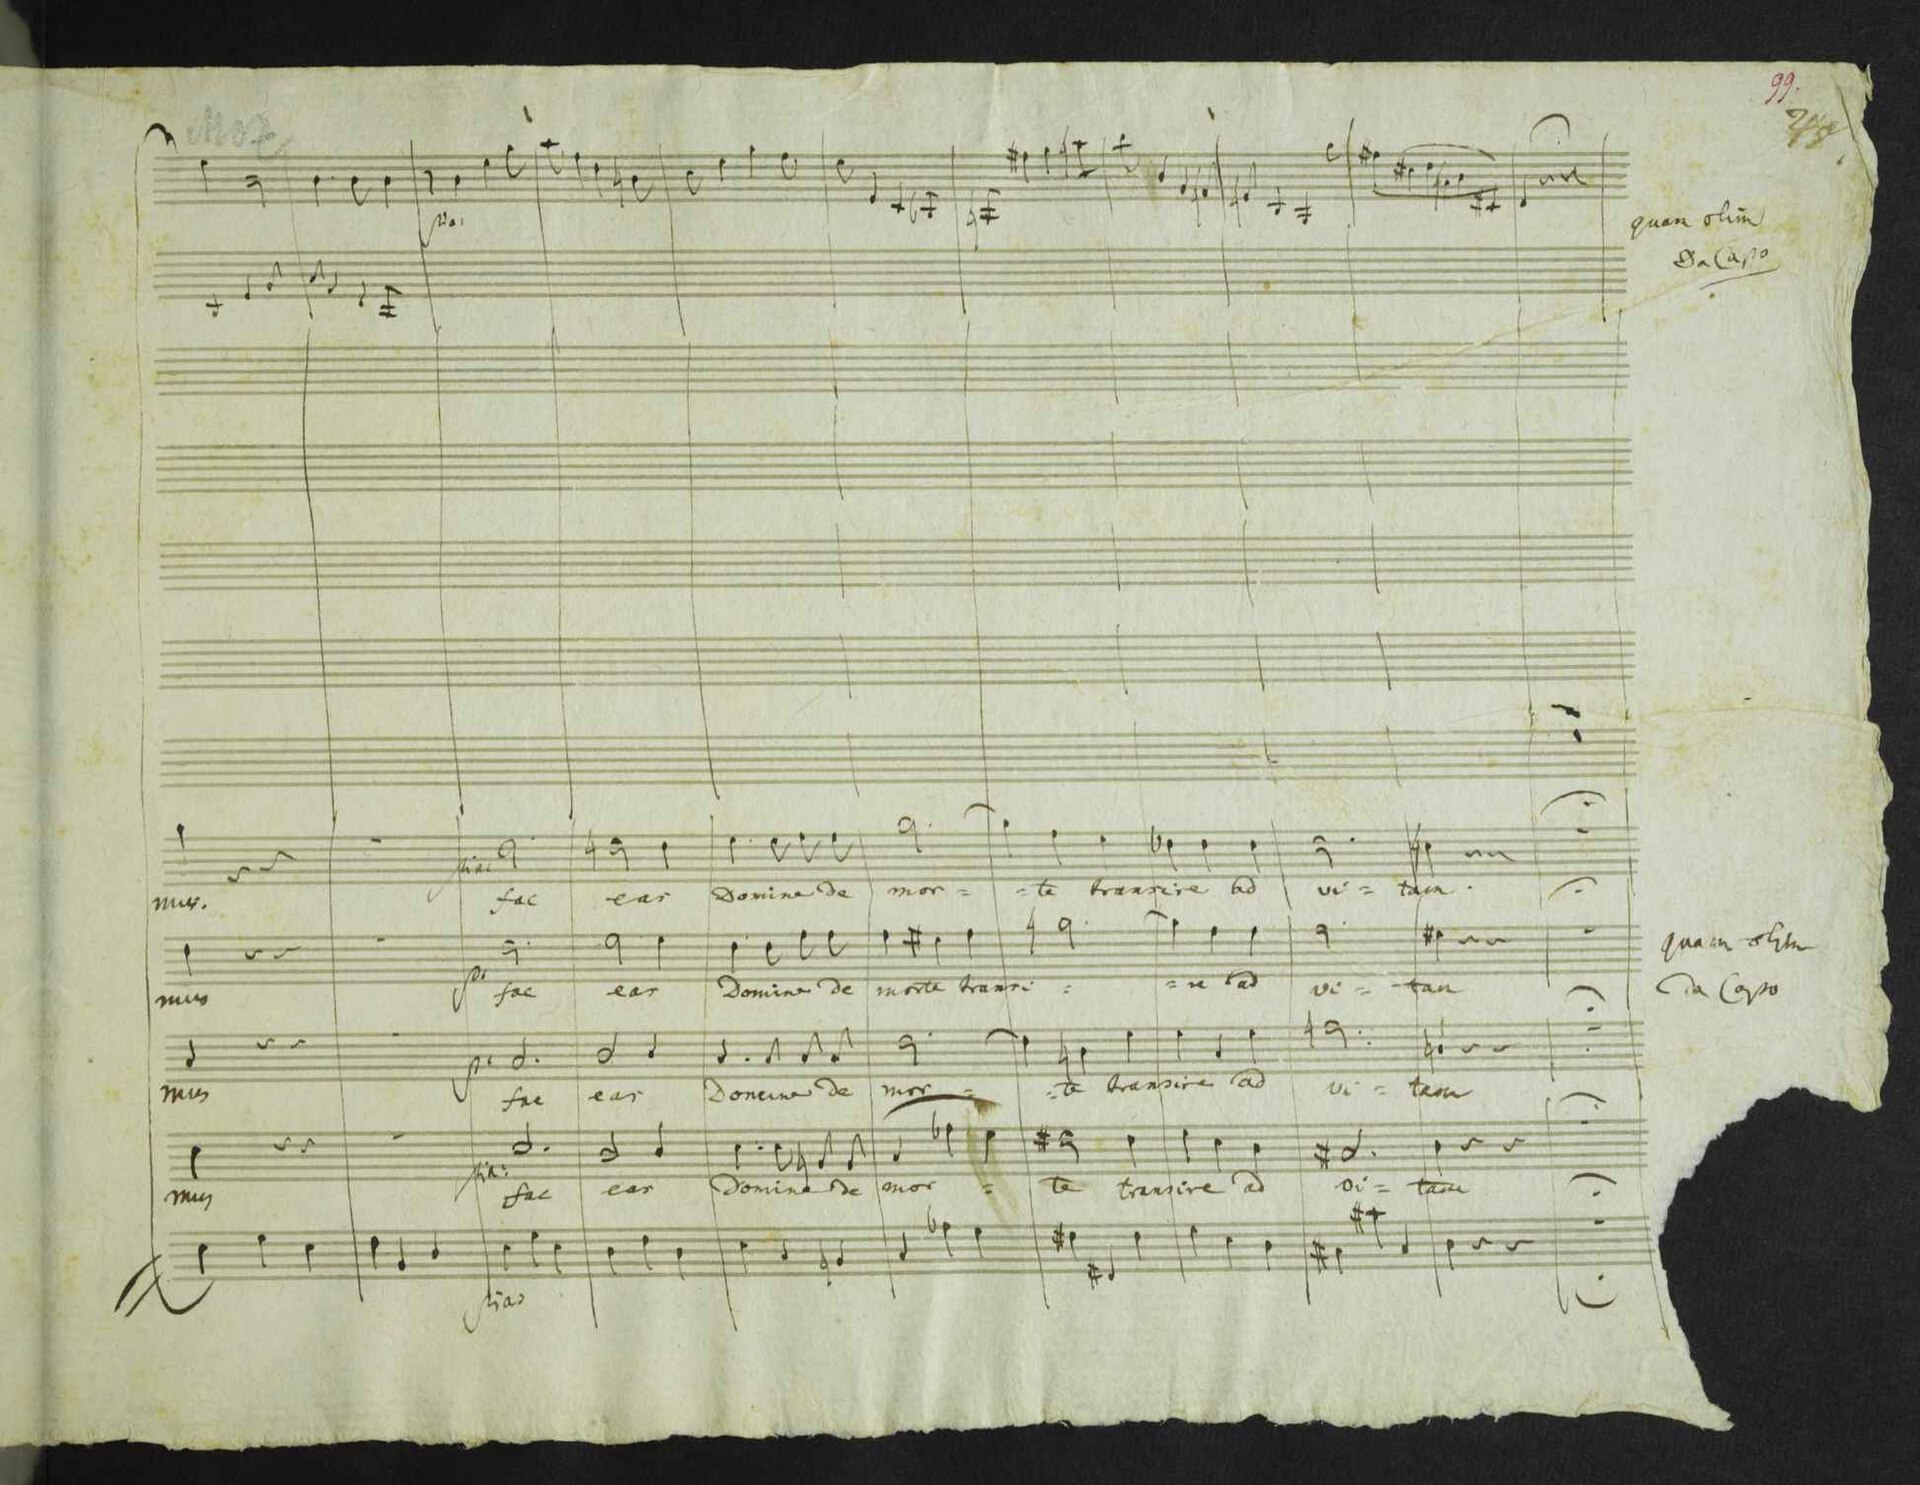 99.
pia:
quam olim
Da Capo
pia:
mus. fac eas Domine de mor = = te transire ad vi = tam.
p:
mus fac eas Domine de morte transi = = re ad vi = tam
quam olim
da Capo
p:
mus fac eas Domine de mor = = te transire ad vi = tam
pia:
mus fac eas Domine de mor = te transire ad vi = tam
pia: